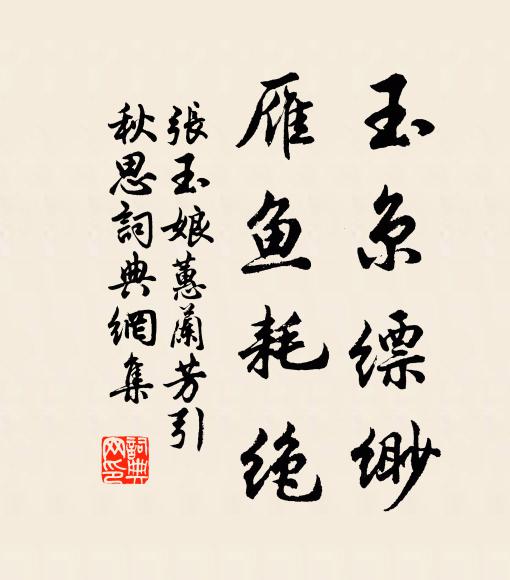 玉京缥缈
雁鱼耗绝
張玉娘蕙蘭芳引
秋思詞典網集
詞典网印